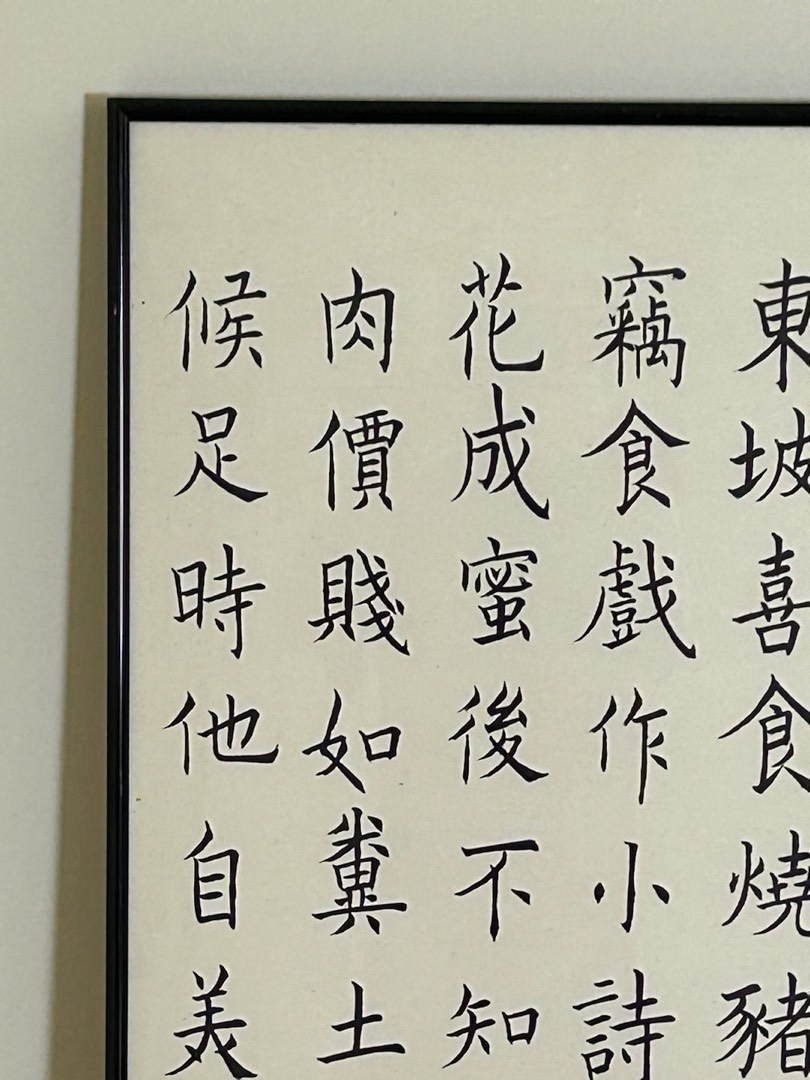 東坡喜食燒豬
竊食戲作小詩
花成蜜後不知
肉價賤如糞土
候足時他自美